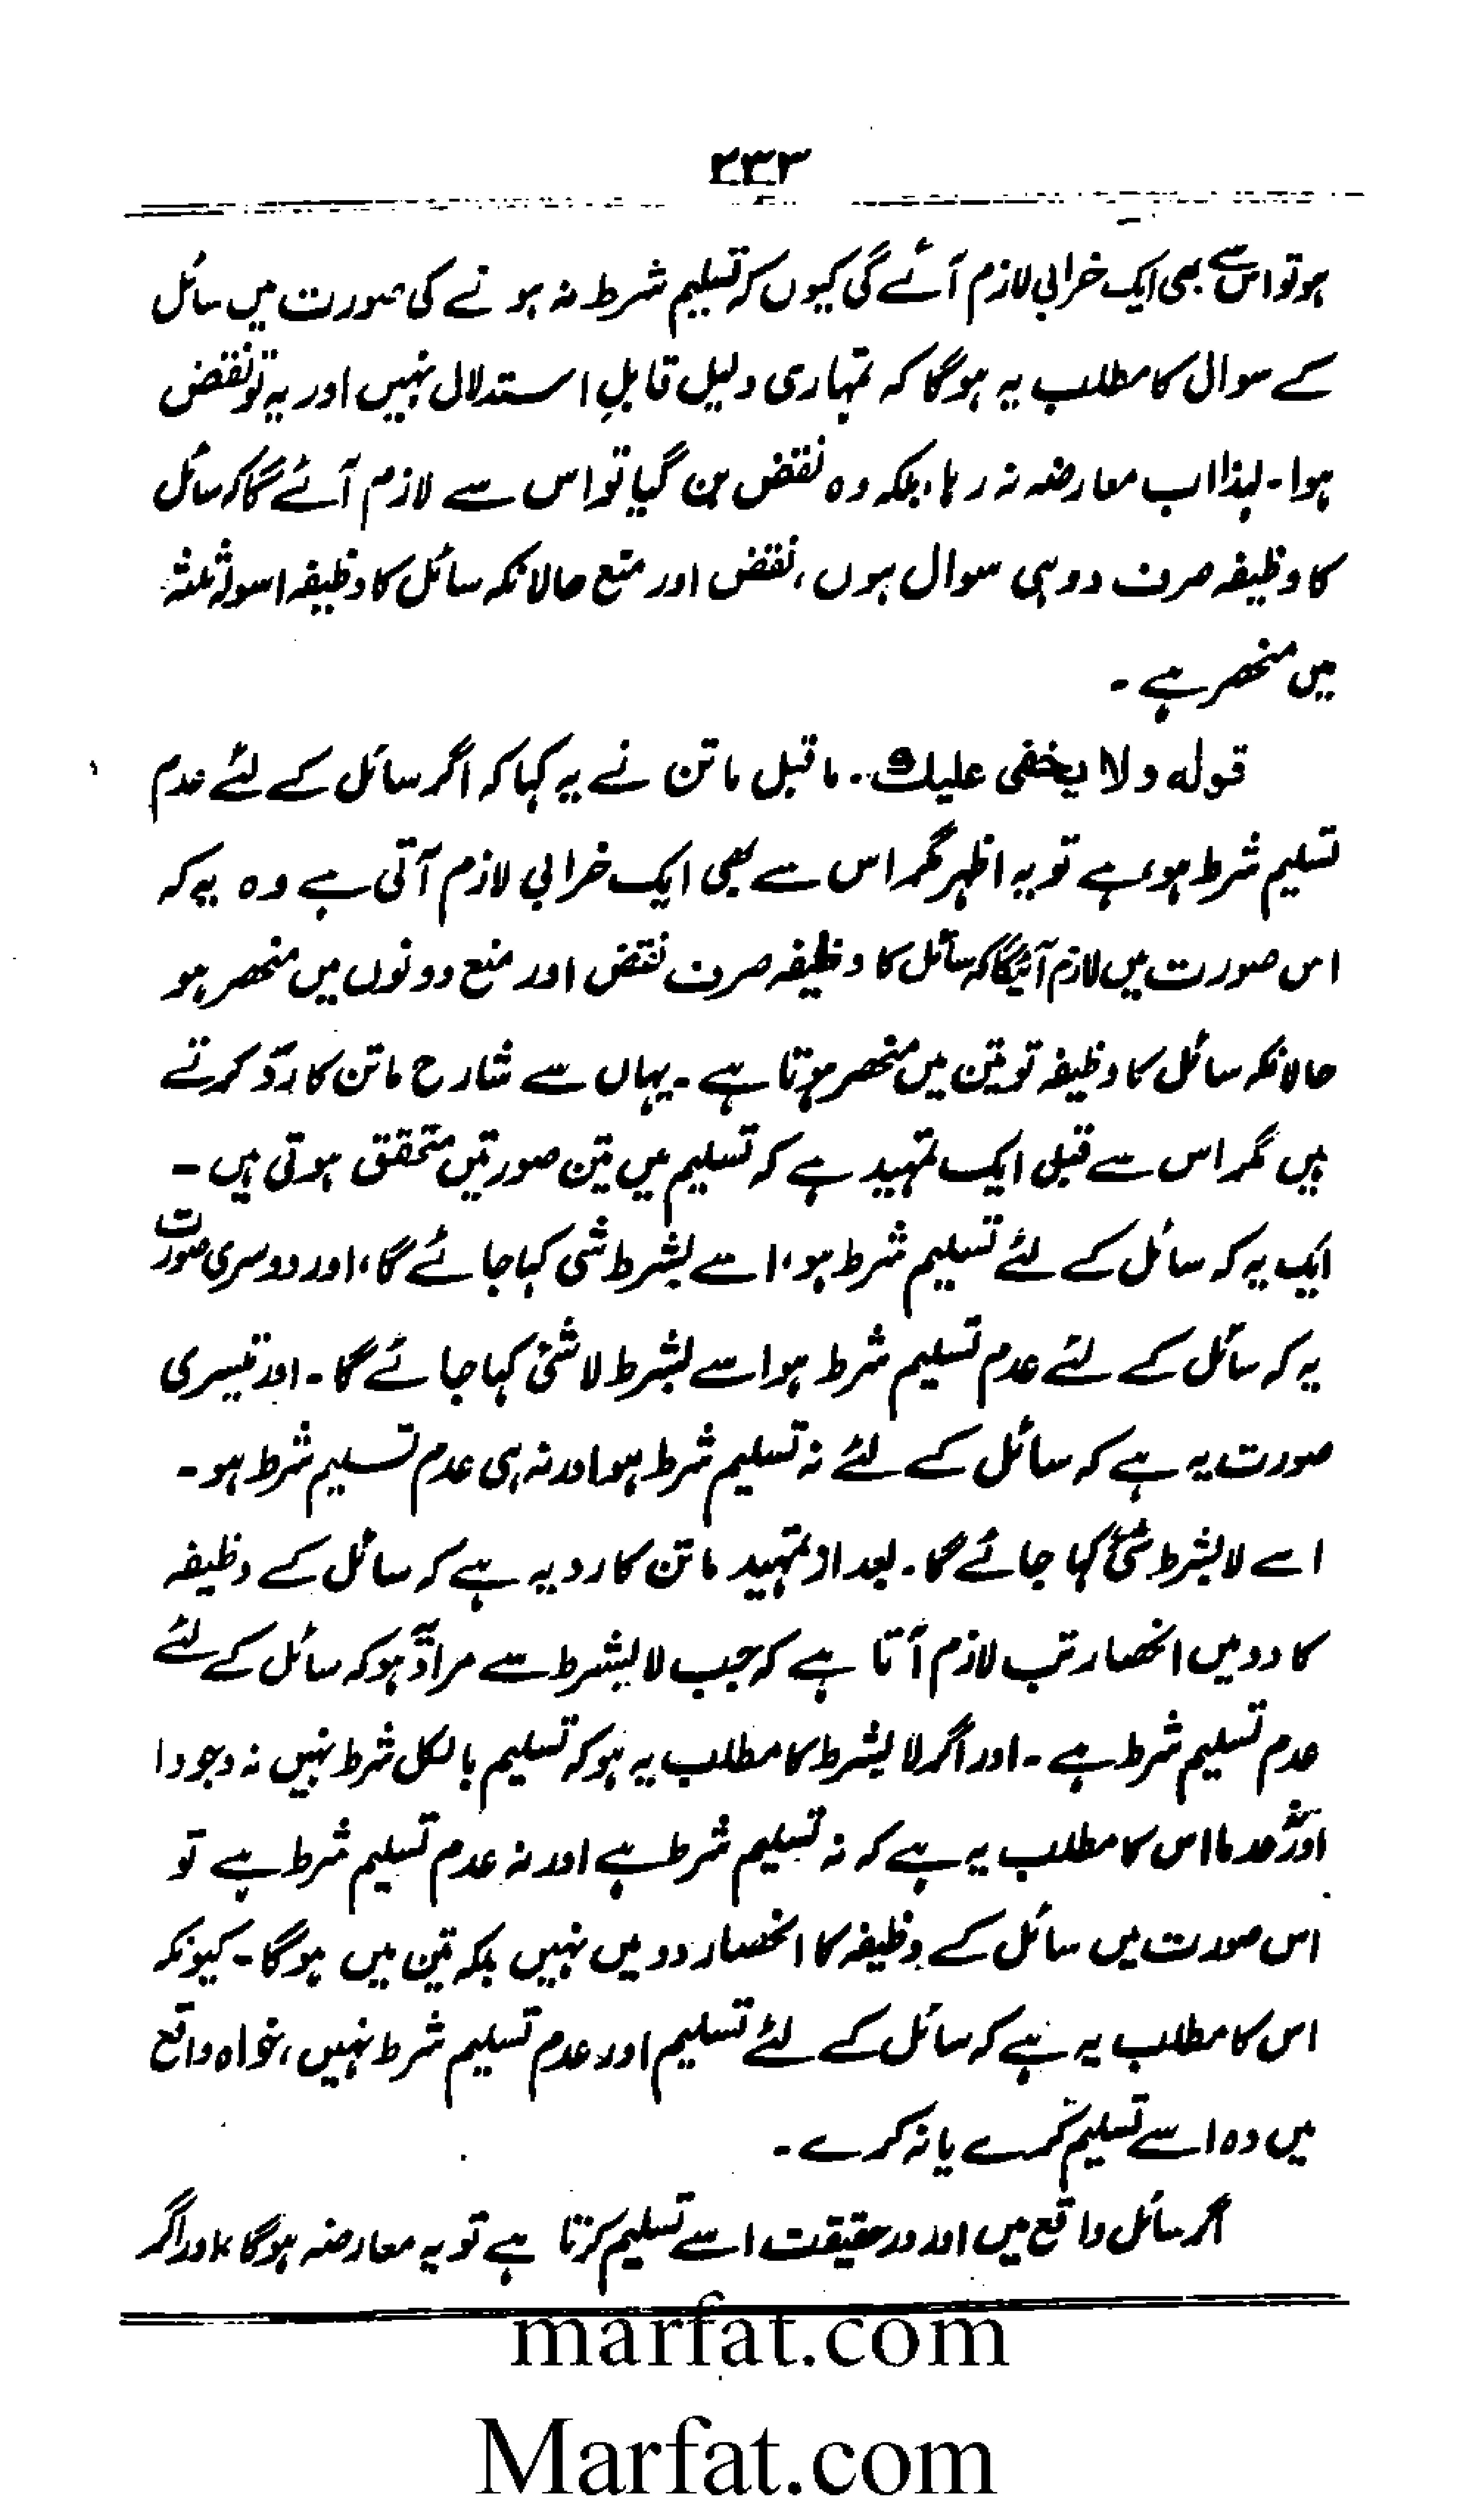 ۲۳۳
ہو تو اس سے بھی ایک خرابی لازم آئے گی کیوں کہ تسلیم شرط نہ ہونے کی صورت میں سائل
کے سوال کا مطلب یہ ہوگا کہ تمہاری دلیل قابلِ استدلال نہیں اور یہ تو نقض
ہوا۔ لہذا اب معارضہ نہ رہا، بلکہ وہ نقض بن گیا تو اس سے لازم آئے گا کہ سائل
کا وظیفہ صرف دو ہی سوال ہوں، نقض اور منع حالانکہ سائل کا وظیفہ اسولۂ ثلثہ
میں منحصر ہے۔
قولہ ولا یخفی علیك۔ ماقبل ماتن نے یہ کہا کہ اگر سائل کے لئے عدم
تسلیم شرط ہو، ہے تو یہ اظہر مگر اس سے بھی ایک خرابی لازم آتی ہے وہ یہ کہ
اس صورت میں لازم آئیگا کہ سائل کا وظیفہ صرف نقض اور منع دونوں میں منحصر ہو
حالانکہ سائل کا وظیفہ تو تین میں منحصر ہوتا ہے۔ یہاں سے شارح ماتن کا ردّ کرتے
ہیں مگر اس سے قبل ایک تمہید ہے کہ تسلیم میں تین صورتیں متحقق ہوتی ہیں۔
ایک یہ کہ سائل کے لئے تسلیم شرط ہو، اسے بشرط شی کہا جائے گا، اور دوسری صورت
یہ کہ سائل کے لئے عدم تسلیم شرط ہو اسے بشرط لا شئ کہا جائے گا۔ اور تیسری
صورت یہ ہے کہ سائل کے لئے نہ تسلیم شرط ہو اور نہ ہی عدم تسلیم شرط ہو۔
اسے لا بشرط شئ کہا جائے گا۔ بعد از تمہید ماتن کا رد یہ ہے کہ سائل کے وظیفہ
کا دو میں انحصار تب لازم آتا ہے کہ جب لا بشرط سے مراد یہ ہو کہ سائل کے لئے
عدم تسلیم شرط ہے۔ اور اگر لا بشرط کا مطلب یہ ہو کہ تسلیم بالکل شرط نہیں نہ وجودا
اور نہ عدما اس کا مطلب یہ ہے کہ نہ تسلیم شرط ہے اور نہ عدم تسلیم شرط ہے تو
اس صورت میں سائل کے وظیفہ کا انحصار دو میں نہیں بلکہ تین میں ہوگا۔ کیونکہ
اس کا مطلب یہ ہے کہ سائل کے لئے تسلیم اور عدم تسلیم شرط نہیں، خواہ واقع
میں وہ اسے تسلیم کرے یا نہ کرے۔
اگر سائل واقع میں اور درحقیقت اسے تسلیم کرتا ہے تو یہ معارضہ ہوگا، اور اگر
marfat.com
Marfat.com